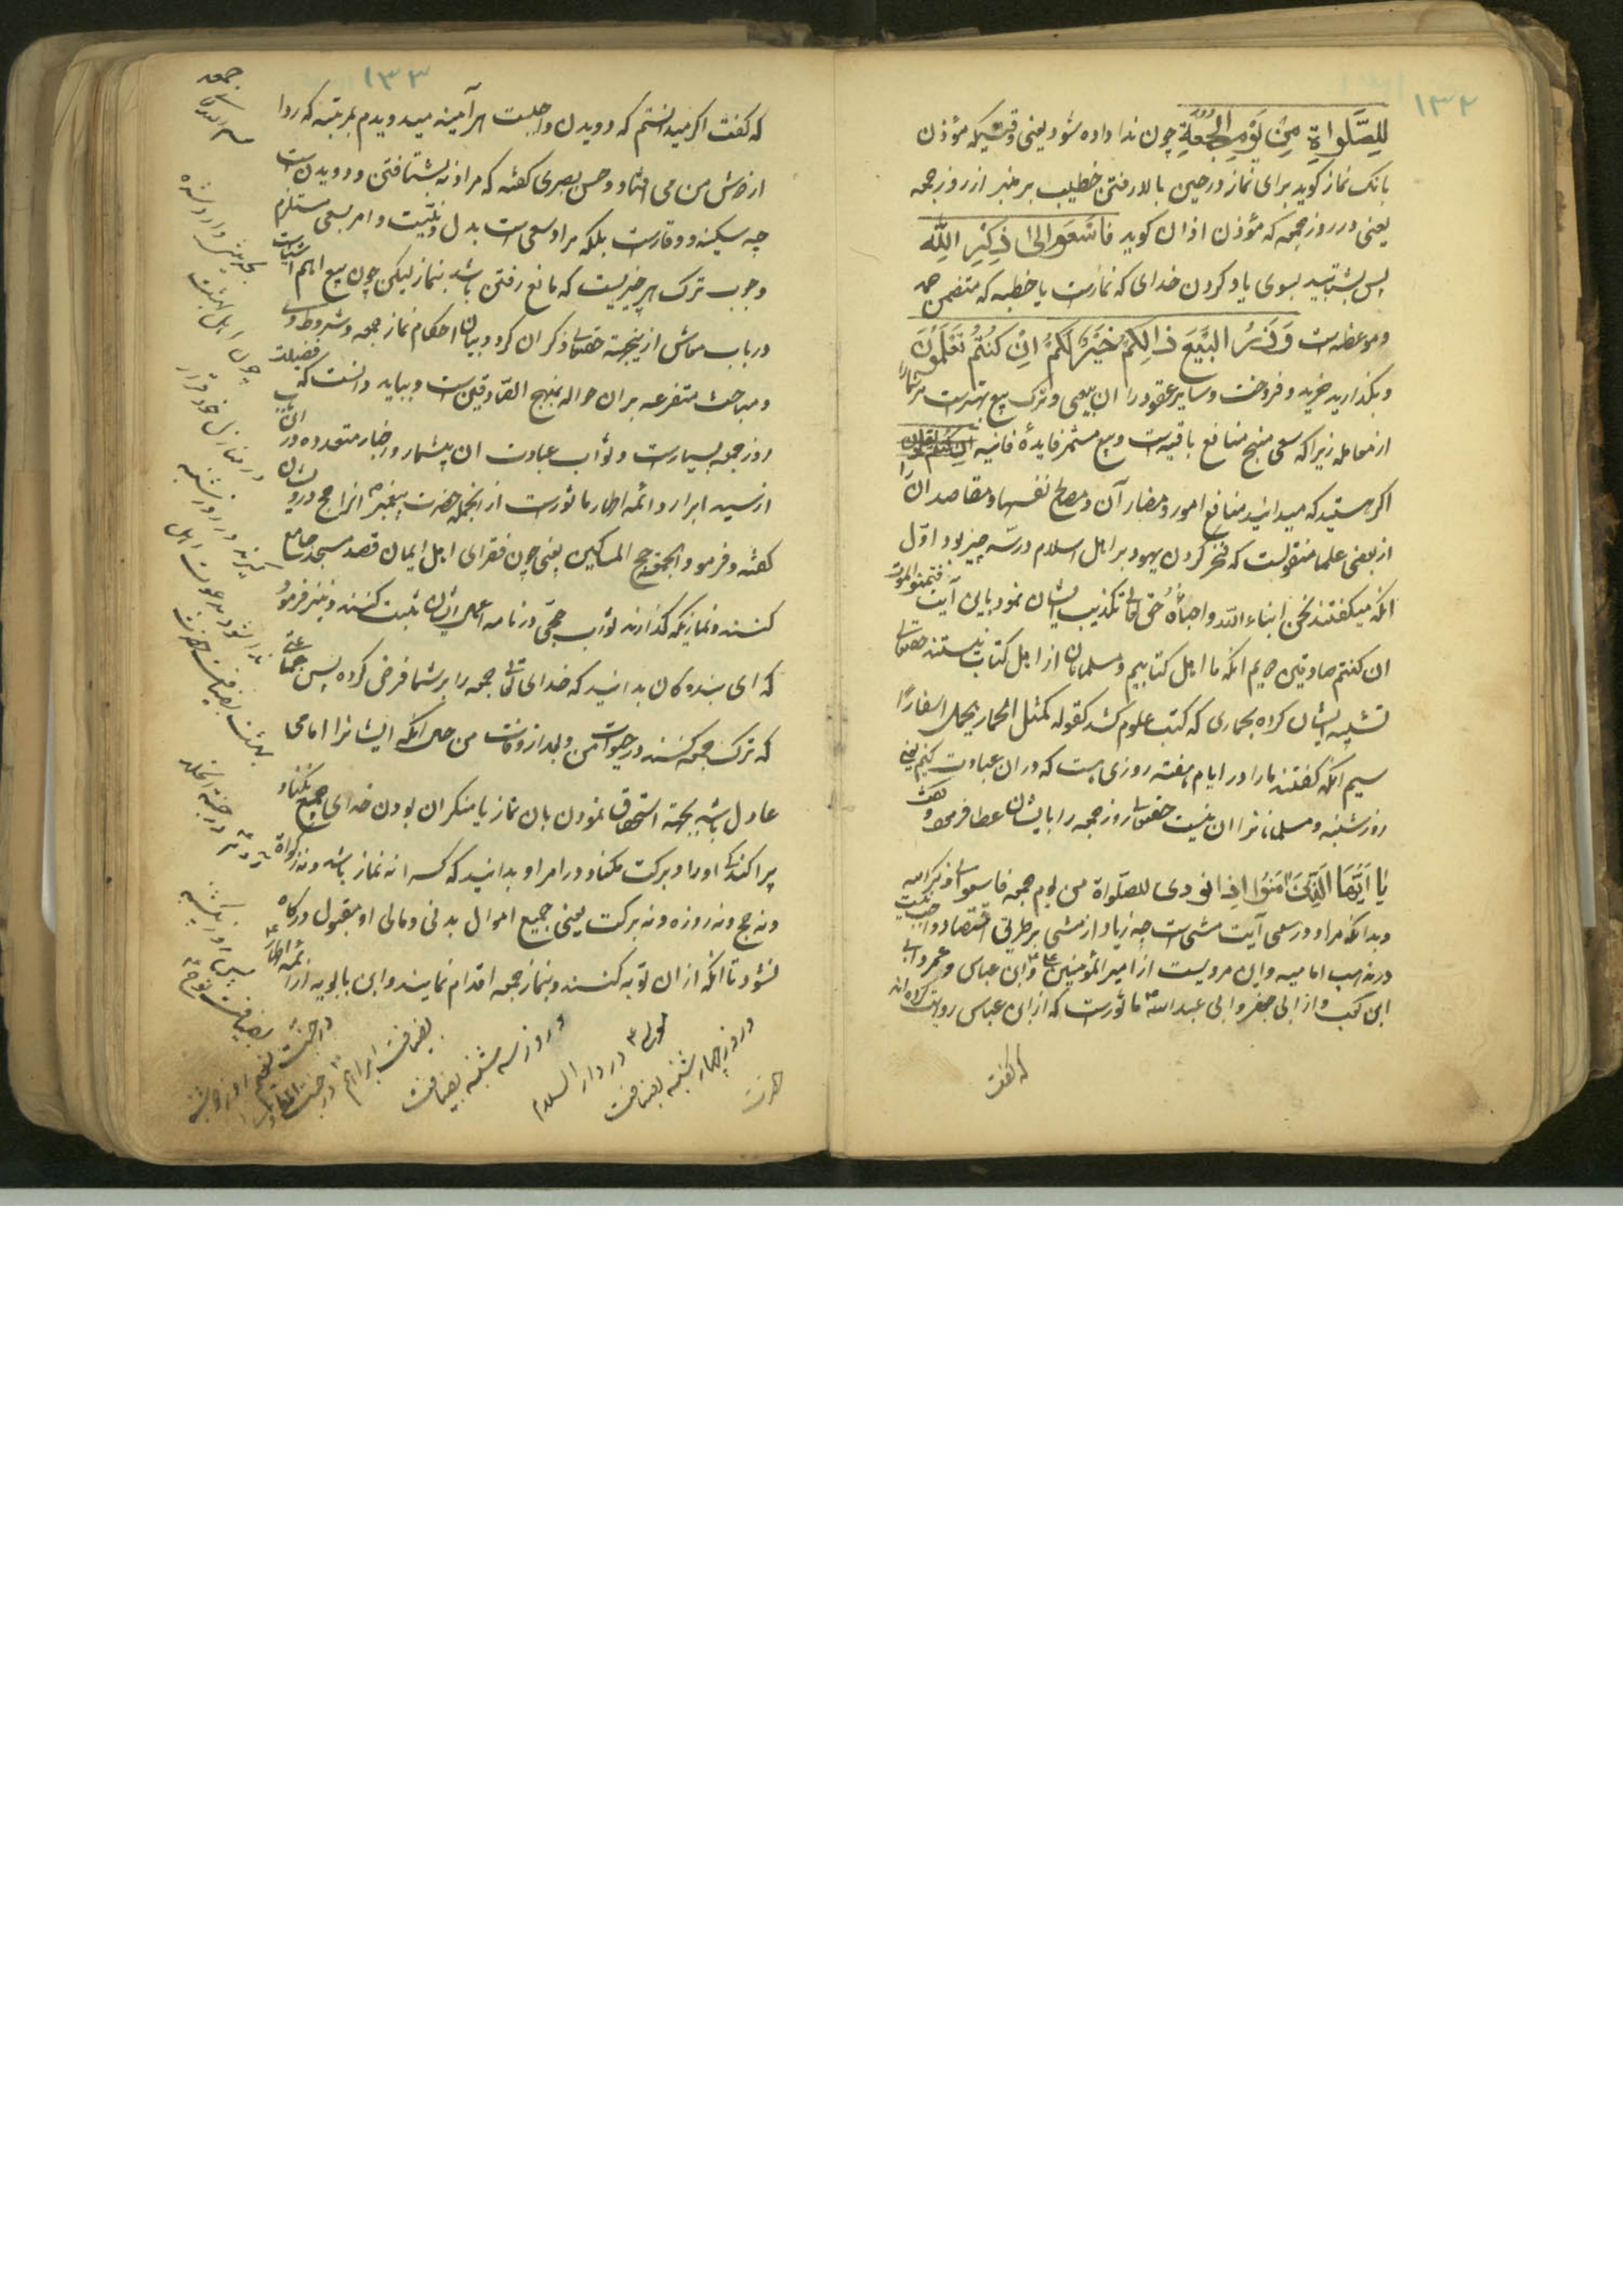 ۱۳۲
لِلصَّلواةِ مِنْ يَوْمِ الْجُمُعَةِ چون ندا داده شود یعنی وقتیکه مؤذن
بانک نماز کوید برای نماز در حین بالا رفتن خطیب بر منبر از روز جمعه
یعنی در روز جمعه که مؤذن اذان کوید فَاسْعَوا اِلىٰ ذِكْرِ اللّٰه
پس بشتابید بسوی یاد کردن خدای که نمازست یا خطبه که متضمن حمد
و موعظه است وَذَرُ الْبَيْعَ ذٰالِكُمْ خَيْرٌ لَكُمْ اِنْ كُنْتُمْ تَعْلَمُوْنَ
و بکذارید خرید و فروخت و سایر عقود را ان سعی و ترک بیع بهترست مرشما را
از معامله زیرا که سعی منتج منافع باقیه است و بیع مستمر فایدهٔ فانیه
اکر هستید که میدانید منافع امور و مضار آن و مصالح نفسها و مقاصد ان را
از بعضی علما منقولست که فخر کردن یهود بر اهل اسلام در سه چیز بود اوّل
انکه میکفتند نحن ابناء اللّه و احباؤه حق تعالی تکذیب ایشان نمود باین آیت فتمنوا الموت
ان کنتم صادقین دویم انکه ما اهل کتابیم و مسلمانان از اهل کتاب نیستند حقتعالی
تشبیه ایشان کرده بحماری که کتب علوم کشد کقوله کمثل الحمار یحمل اسفارًا
سیم انکه کفتند ما را در ایام هفته روزی هست که در ان عبادت کنیم یعنی
روز شنبه و مسلمانانرا ان نیست حقتعالی روز جمعه را بایشان عطا فرمود و کفت
يٰا اَيُّهَا الَّذِيْنَ اٰمَنُوا اِذٰا نودی للصلواة من یوم جمعه فاسعوا الی ذکر الله
و بدانکه مراد در سعی آیت مشی است چه زیاد از مشی بر طریق اقتصاد واجب نیست
در مذهب امامیه و این مرویست از امیر المؤمنین ع و ابن عباس و عمر و ابی
ابن کعب و از ابی جعفر و ابی عبد الله ع ماثورست که از ابن عباس روایت کرده اند
که کفت
۱۳۳
که کفت اکر میدانستم که دویدن واجبست هر آینه میدویدم بمرتبه که ردا
از دوش من می افتاد و حسن بصری کفته که مراد نه بشتافتن و دویدن است
چه سکینه و وقارست بلکه مراد سعی است بدل و نیّت و امر بسعی مستلزم
وجوب ترک هر چیزیست که مانع رفتن باشد بنماز لیکن چون بیع اهم اشیاست
در باب معاش ازینجهة حقتعالی ذکر ان کرد و بیان احکام نماز جمعه و شروط وی
و مباحث متفرعه بران حواله بمنهج الصّادقین است و بباید دانست که فضیلت
روز جمعه بسیارست و ثواب عبادت ان بیشمار و اخبار متعدده در ان باب
از سید ابرار و ائمه اطهار ماثورست از انجمله حضرت پیغمبر ص انرا حج درویشان
کفته و فرمود الجمعة حج المساکین یعنی چون فقرای اهل ایمان قصد مسجد جامع
کنند و نمازیکه کذارند ثواب حجّی در نامه اعمال ایشان ثبت کنند و نیز فرمود
که ای بندکان بدانید که خدای تعالی جمعه را بر شما فرض کرده پس جماعتی
که ترک جمعه کنند در حیوات من و بعد از وفات من حال انکه ایشانرا امامی
عادل باشد بجهة استحقاق نمودن بان نماز یا منکر ان بودن خدای جمیع نکناد
پراکندکی او را و برکت مکناد در امر او بدانید که کسرا نه نماز باشد و نه زکواة
و نه حج و نه روزه و نه برکت یعنی جمیع اموال بدنی و مالی او مقبول درکاه
نشود تا انکه ازان توبه کنند و بنماز جمعه اقدام نمایند و ابن بابویه از ائمه اطهار ع
جمعه
بحدیثی وارد شده
چون اهل بهشت
در منازل خود قرار
کیرند در روز شنبه
ندا شود بدعوت اهل
بهشت بضیافت حضرت
آدم ع در جنة الخلد
پس روز یکشنبه
بضیافت نوح ع
در جنت نعیم روز دوشنبه
بضیافت ابراهیم ع در جنت الماوی
و روز سه شنبه بضیافت
موسی ع در دار السلام
و روز چهارشنبه بضیافت
حضرت